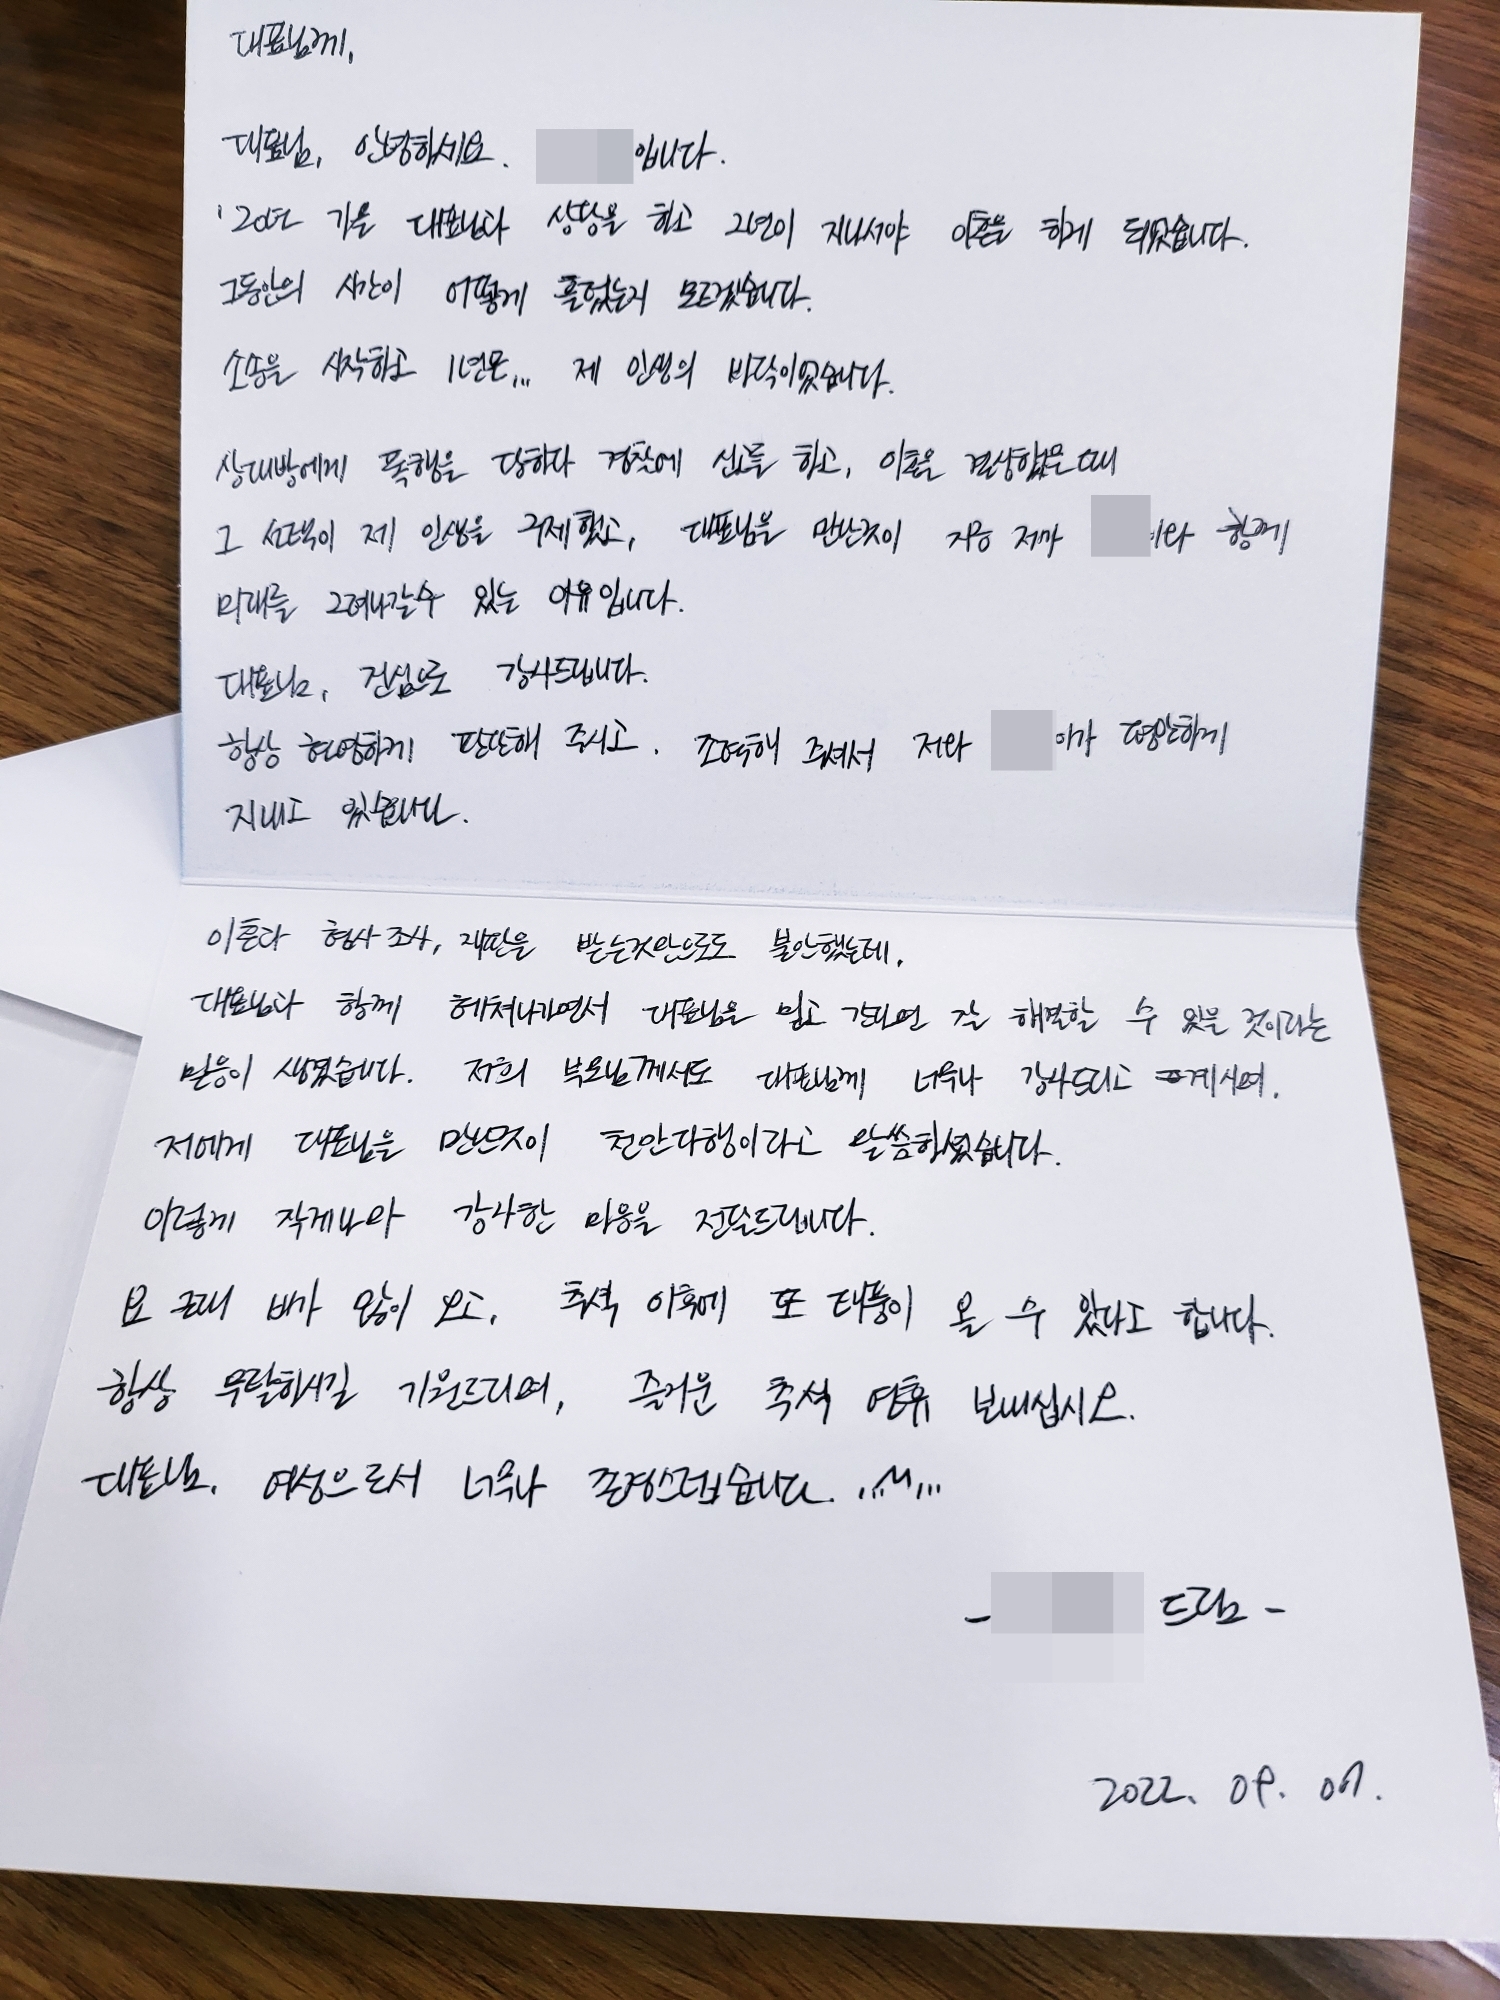 대표님께,
대표님, 안녕하세요. 입니다.
'20년 가을 대표님과 상담을 하고 2년이 지나서야 이혼을 하게 되었습니다.
그동안의 시간이 어떻게 흘렀는지 모르겠습니다.
소송을 시작하고 1년은... 제 인생의 바닥이었습니다.
상대방에게 폭행을 당하다 경찰에 신고를 하고, 이혼을 결심했을 때
그 선택이 제 인생을 구제했고, 대표님을 만난것이 지금 저가 이와 함께
미래를 그려나갈수 있는 이유입니다.
대표님, 진심으로 감사드립니다.
항상 현명하게 판단해 주시고. 조언해 주셔서 저와 이가 평안하게
지내고 있습니다.
이혼과 형사조사, 재판을 받는것만으로도 불안했는데,
대표님과 함께 헤쳐나가면서 대표님을 믿고 간다면 잘 해결할 수 있을 것이라는
믿음이 생겼습니다. 저희 부모님께서도 대표님께 너무나 감사드리고 계시며,
저에게 대표님을 만난것이 천만다행이라고 말씀하셨습니다.
이렇게 작게나마 감사한 마음을 전달드립니다.
요 근래 비가 많이 오고, 추석 이후에 또 태풍이 올 수 있다고 합니다.
항상 무탈하시길 기원드리며, 즐거운 추석 연휴 보내십시오.
대표님, 여성으로서 너무나 존경스럽습니다.
- 드림 -
2022. 09. 07.